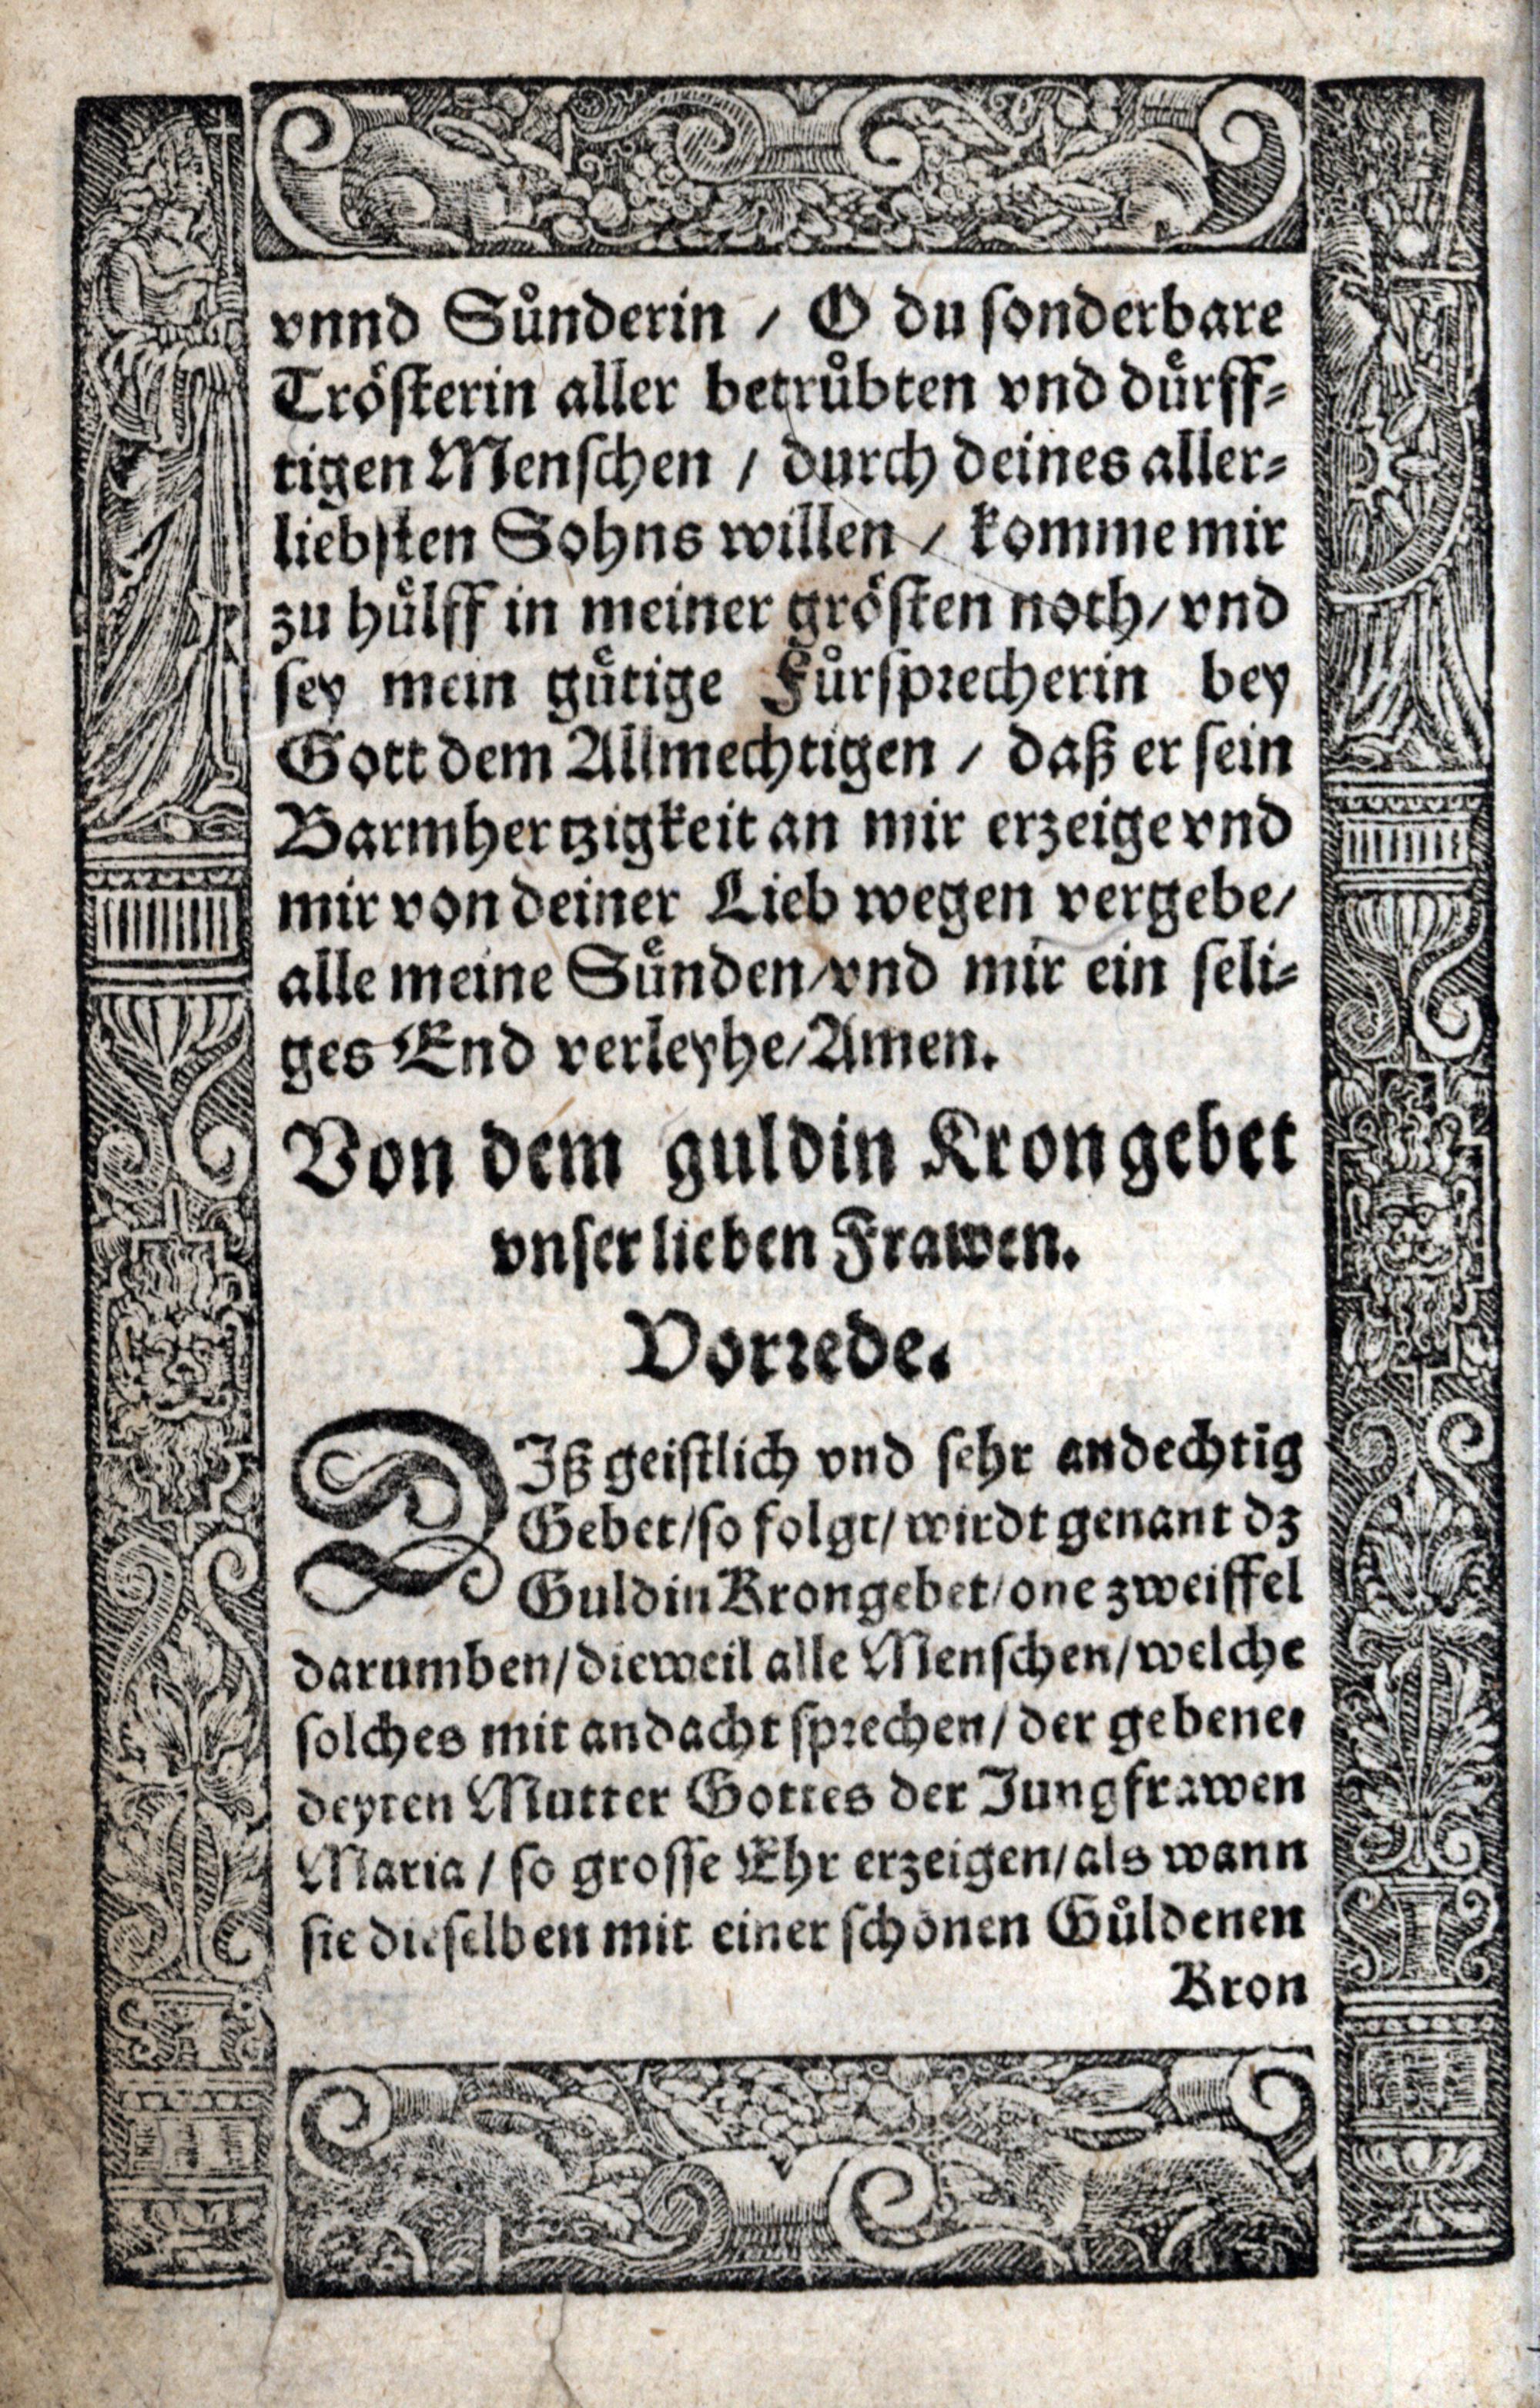 vnnd Sůnderin / O du sonderbare
Trösterin aller betrůbten vnd dürff-
tigen Menschen / durch deines aller-
liebsten Sohns willen / komme mir
zu hülff in meiner grösten noth/ vnd
sey mein gütige Fůrsprecherin bey
Gott dem Allmechtigen / daß er sein
Barmhertzigkeit an mir erzeige vnd
mir von deiner Lieb wegen vergebe/
alle meine Sünden/vnd mir ein seli-
ges End verleyhe/Amen.
Von dem guldin Kron gebet
vnser lieben Frawen.
Vorrede.
DIß geistlich vnd sehr andechtig
Gebet/so folgt/ wirdt genant dz
Guldin Krongebet/one zweiffel
darumben/dieweil alle Menschen/welche
solches mit andacht sprechen/ der gebene-
deyten Mutter Gottes der Jungfrawen
Maria / so grosse Ehr erzeigen/als wann
sie dieselben mit einer schönen Gůldenen
Kron